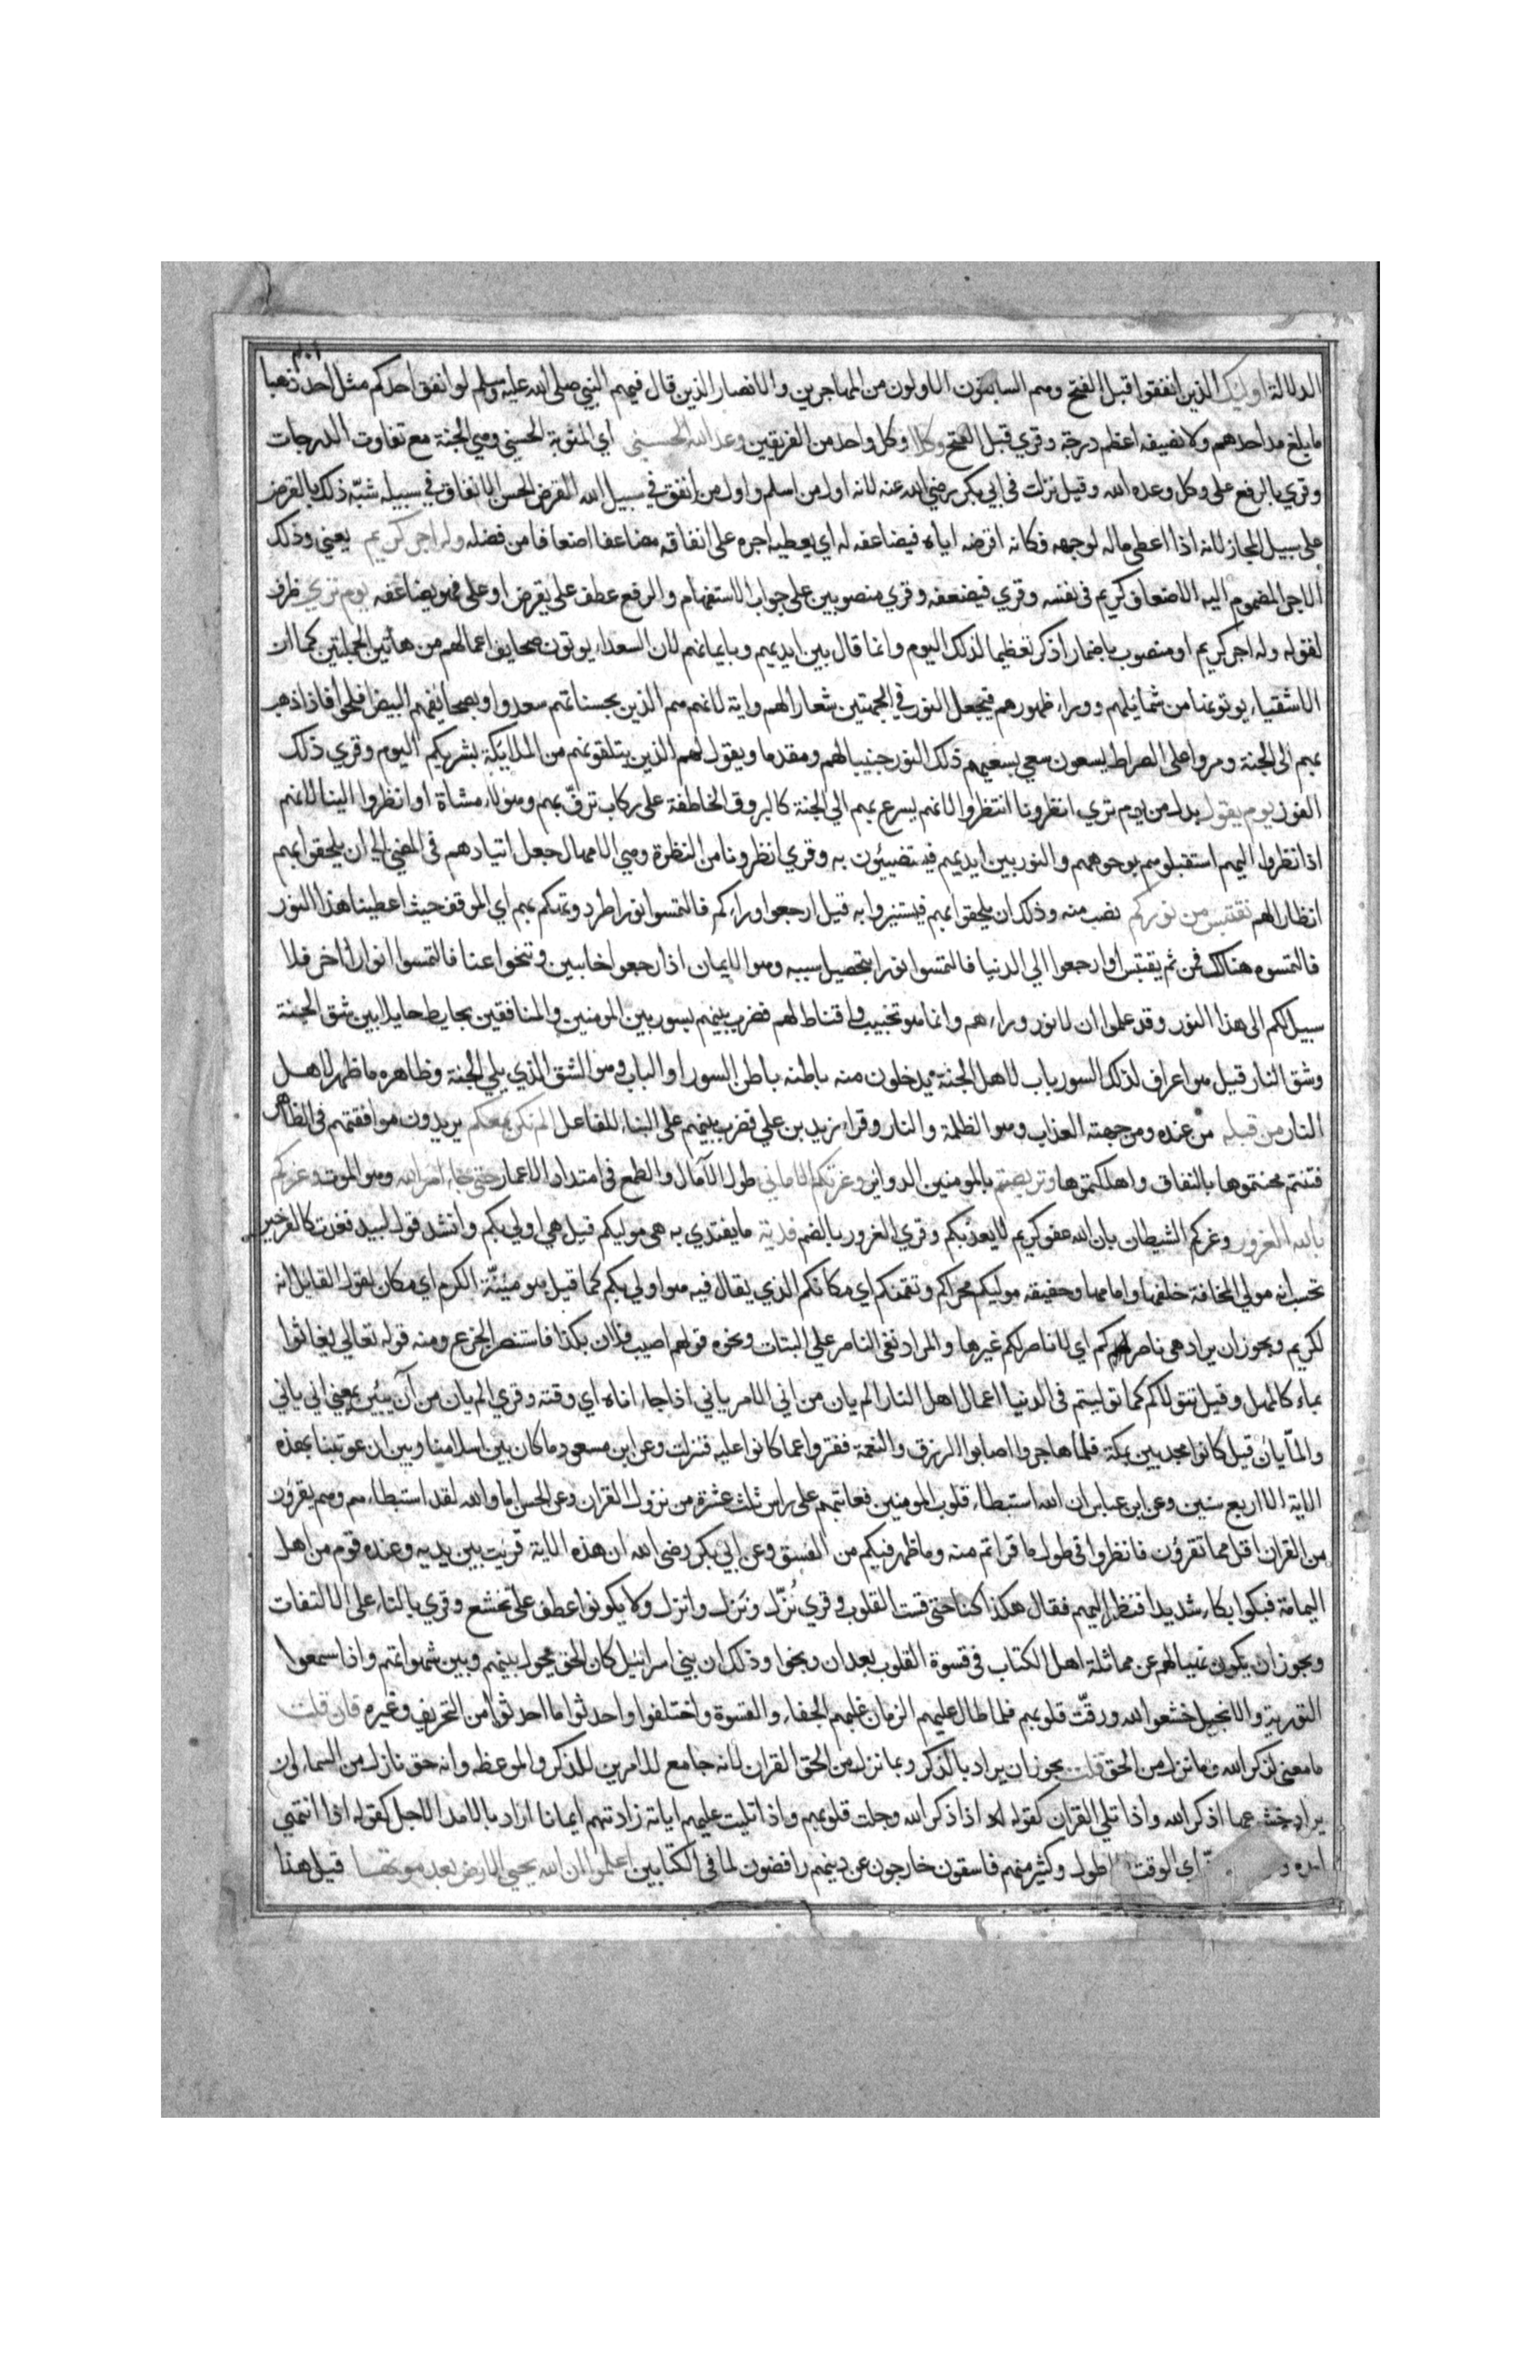 الدلالة اوليك الذين انفقوا قبل الفتح وهم السابقون الاولون من المهاجرين والانصار الذين قال فيهم النبي صلى الله عليه وسلم لو انفق احدكم مثل احد ذهبا
ما بلغ مد احدهم ولا نصيفه اعظم درجة وقري قبل الفتح وكلا وكل واحد من الفريقين وعد الله الحسنى اي المثوبة الحسنى وهي الجنة مع تفاوت الدرجات
وقري بالرفع على وكل وعده الله وقيل نزلت في ابي بكر رضي الله عنه لانه اول من اسلم واول من انفق في سبيل الله القرض الحسن الانفاق في سبيله شبّه ذلك بالقرض
على سبيل المجاز لانه اذا اعطى ماله لوجهه فكانه اقرضه اياه فيضاعفه له اي يعطيه اجره على انفاقه مضاعفا اضعافا من فضله وله اجر كريم يعني وذلك
الاجر المضموم اليه الاضعاف كريم في نفسه وقري فيضعفه وقري منصوبين على جواب الاستفهام والرفع عطف على يقرض او على فهو يضاعفه يوم ترى ظرف
لقوله وله اجر كريم او منصوب باضمار اذكر تعظيما لذلك اليوم وانما قال بين ايديهم وبايمانهم لان السعداء يوتون صحايف اعمالهم من هاتين الجهتين كما ان
الاشقياء يوتونها من شمائلهم ووراء ظهورهم فيجعل النور في الجهتين شعارا لهم واية لانهم هم الذين بحسناتهم سعدوا وبصحائفهم البيض افلحوا فاذا ذهب
بهم الى الجنة ومروا على الصراط يسعون سعي بسعيهم ذلك النور جنيبا لهم ومقدما ويقول لهم الذين يتلقونهم من الملايكة بشريكم اليوم وقري ذلك
الفوز يوم يقول بدل من يوم ترى انظرونا انتظروا لانهم يسرع بهم الي الجنة كالبروق الخاطفة على ركاب تزفّ بهم وهولاء مشاة او انظروا الينا لانهم
اذا نظروا اليهم استقبلوهم بوجوههم والنور بين ايديهم فيستضيئون به وقري انظرونا من النظرة وهي الامهال جعل اتيادهم في المضي الى ان يلحقوا بهم
انظارا لهم نقتبس من نوركم نصب منه وذلك ان يلحقوا بهم فيستنيروا به قيل ارجعوا وراءكم فالتمسوا نورا طرد وتهكم بهم اي الموقف حيث اعطينا هذا النور
فالتمسوه هنالك فمن ثم يقتبس او ارجعوا الي الدنيا فالتمسوا نورا بتحصيل سببه وهو الايمان اذا ارجعوا خايبين وتنحوا عنا فالتمسوا نورا اخر فلا
سبيل لكم الى هذا النور وقد علموا ان لا نور وراءهم وانما هو تخييب واقناط لهم فضرب بينهم بسور بين المومنين والمنافقين بحايط حايل بين شق الجنة
وشق النار قيل هو اعراف لذلك السور باب لاهل الجنة يدخلون منه باطنه باطن السور او الباب وهو الشق الذي يلي الجنة وظاهره ما ظهر لاهل
النار من قبله من عنده ومن جهته العذاب وهو الظلمة والنار وقراء زيد بن علي فضرب بينهم على البناء للفاعل الم نكن معكم يريدون موافقتهم في الظاهر
فتنتم محنتموها بالنفاق واهلكتموها وتربصتم بالمومنين الدواير وغرتكم الاماني طول الآمال والطمع في امتداد الاعمار حتى جاء امر الله وهو الموت وغركم
بالله الغرور وغركم الشيطان بان الله عفو كريم لا يعذبكم وقري الغرور بالضم فدية ما يفتدي به هي موليكم قيل هي اولي بكم وانشد قول لبيد فغدت كالفرجين
تحسب انه مولي المخافة خلفها وامامها وحقيقه موليكم محراكم وتقمنكم اي مكانكم الذي يقال فيه هو اولي بكم كما قيل هو مئنّة الكرم اي مكان لقول القايل انه
لكريم ويجوز ان يراد هي ناصركم اي لا ناصر لكم غيرها والمراد نفي الناصر علي البتات ونحوه قولهم اصيب فلان بكذا فاستنصر الجزع ومنه قوله تعالي يغاثوا
بماء كالمهل وقيل تتولاكم كما توليتم في الدنيا اعمال اهل النار الم يان من اني الامر ياني اذا جاء اناه اي وقته وقري الم يان من آن يئين بمعني اني ياني
والمّا يان قيل كانوا مجدبين بمكة فلما هاجروا اصابوا الرزق والنعمة ففتروا عما كانوا عليه فنزلت وعن ابن مسعود ما كان بين اسلامنا وبين ان عوتبنا بهذه
الاية الا اربع سنين وعن ابن عباس ان الله استبطاء قلوب المومنين فعاتبهم على راس ثلث عشرة من نزول القران وعن الحسن اما والله لقد استبطاءهم وهم يقرؤن
من القران اقل مما تقرؤن فانظروا في طول ما قراتم منه وما ظهر فيكم من الفسق وعن ابي بكر رضى الله ان هذه الاية قريت بين يديه وعنده قوم من اهل
اليمامة فبكوا بكاء شديدا فنظر اليهم فقال هكذا كنا حتى قست القلوب وقري نُزّل ونَزل وانزل ولا يكونوا عطف على تخشع وقري بالتاء على الالتفات
ويجوز ان يكون نهيا لهم عن مماثلة اهل الكتاب في قسوة القلوب بعد ان وبخوا وذلك ان بني اسرائيل كان الحق يحول بينهم وبين شهواتهم واذا سمعوا
التورية والانجيل خشعوا لله ورقّت قلوبهم فلما طال عليهم الزمان غلبهم الجفاء والقسوة واختلفوا واحدثوا ما احدثوا من التحريف وغيره فان قلت
ما معنى لذكر الله وما نزل من الحق قلت يجوز ان يراد بالذكر وبما نزل من الحق القران لانه جامع للامرين للذكر والموعظه وانه حق نازل من السماء وان
يراد خشوعها اذ ذكر الله واذا تلي القران كقوله اذا ذكر الله وجلت قلوبهم واذا تليت عليهم اياته زادتهم ايمانا اراد بالامد الاجل كقوله اذا انتهي
امده اي الوقت الاطول وكثير منهم فاسقون خارجون عن دينهم رافضون لما في الكتابين اعلموا ان الله يحيي الارض بعد موتها قيل هذا